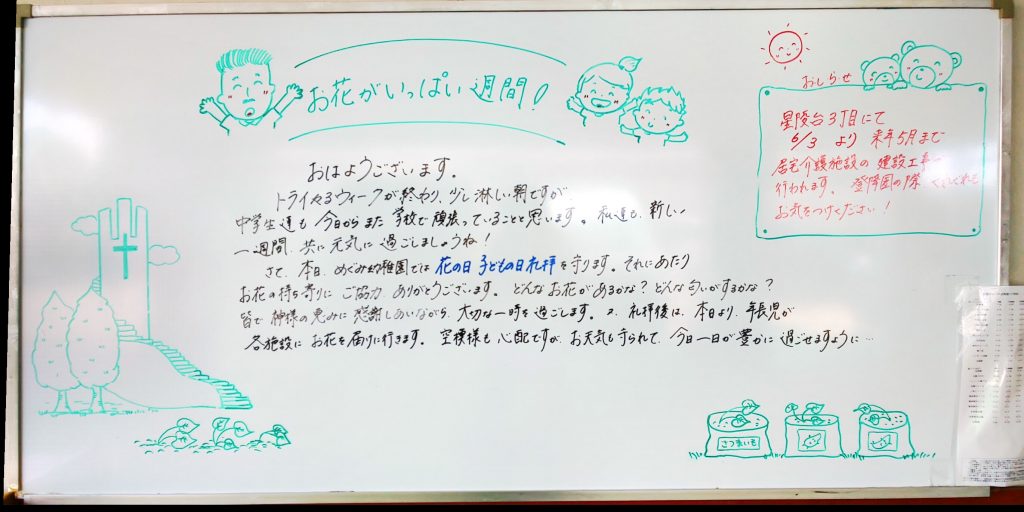 お花がいっぱい週間!
おはようございます。
トライやるウィークが終わり、少し淋しい朝ですが、
中学生達も今日からまた学校で頑張っていることと思います。私達も、新しい
一週間、共に元気に過ごしましょうね!
さて、本日、めぐみ幼稚園では花の日子どもの日礼拝を守ります。それにあたり
お花の持ち寄りにご協力、ありがとうございます。どんなお花があるかな?どんな匂いがするかな?
皆で神様の恵みに感謝しあいながら、大切な一時を過ごします。又、礼拝後は、本日より、年長児が
各施設にお花を届けに行きます。空模様も心配ですが、お天気も守られて、今日一日が豊かに過ごせますように…
おしらせ
星陵台3丁目にて
6/3 より 来年5月まで
居宅介護施設の建設工事が
行われます。登降園の際、くれぐれも
お気をつけください!
さつまいも